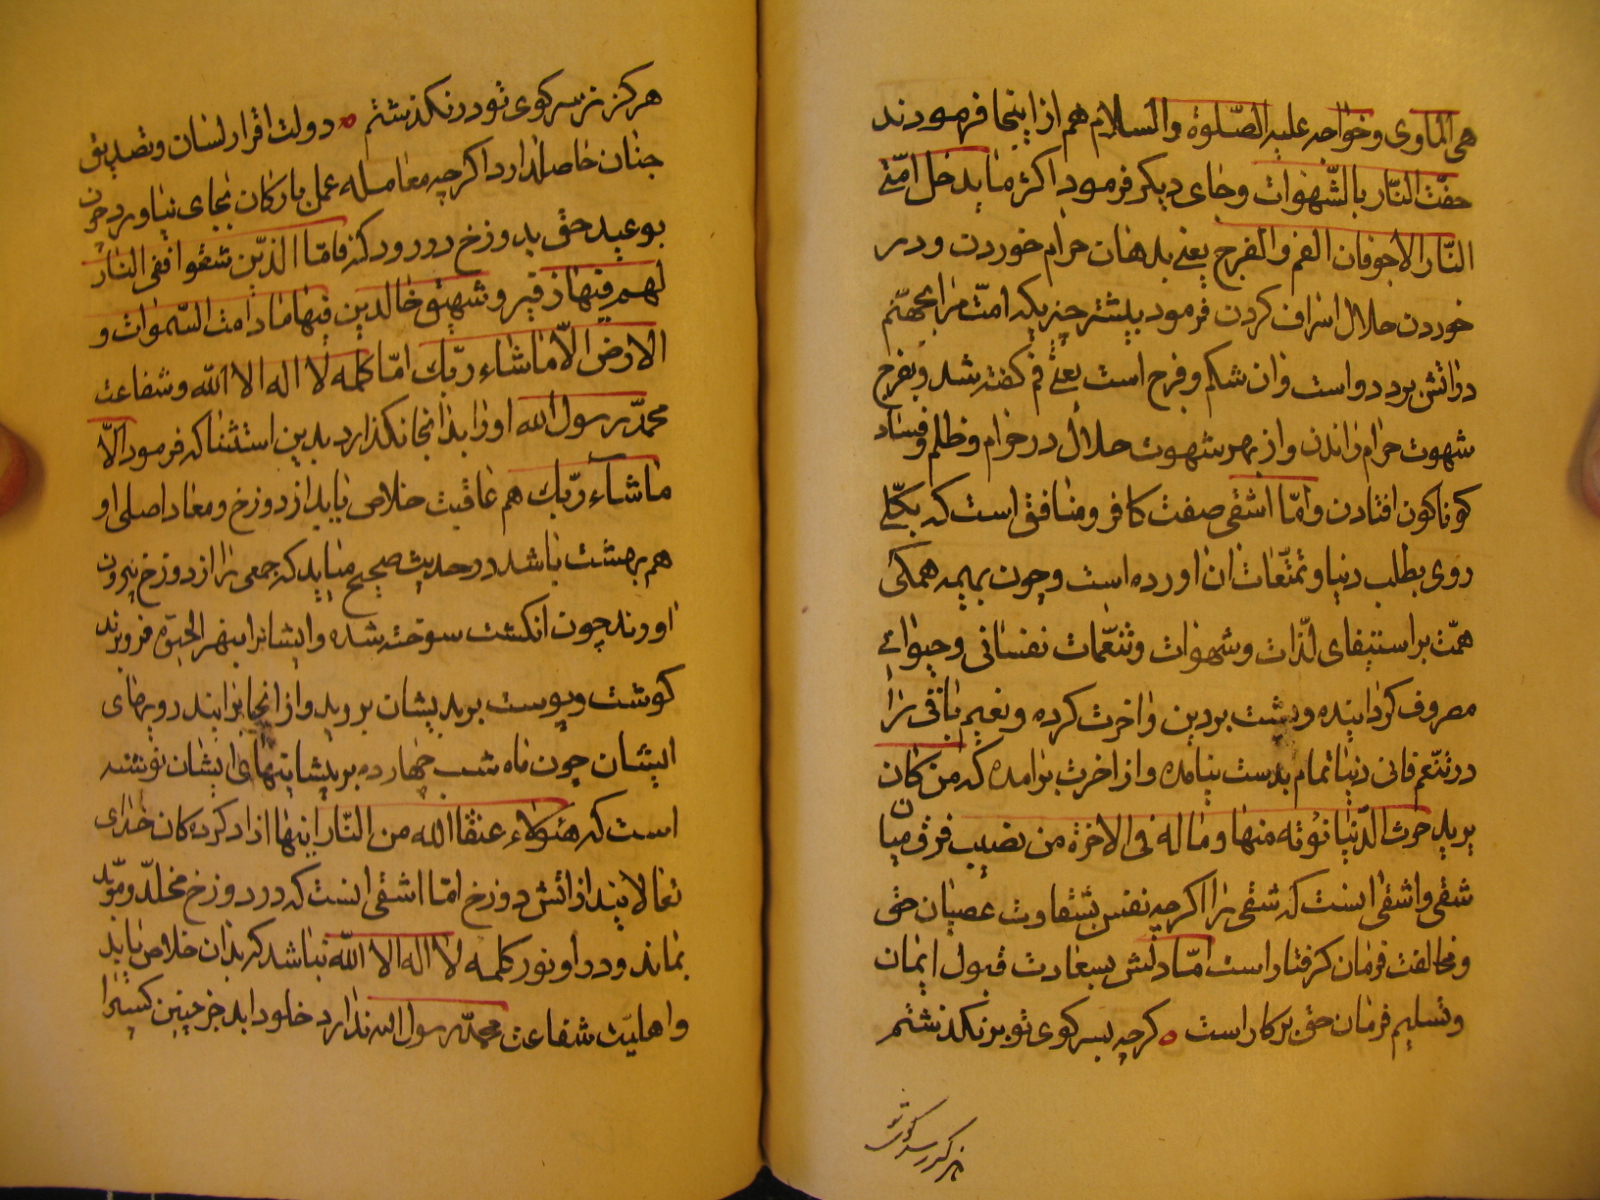 هی الماوی وخواجه علیه الصّلوة والسلام هم از اینجا فرمودند
حفّت النّار بالشّهوات وجای دیکر فرمود اکثر ما یدخل امّتی
النّار الاجوفان الفم والفرج یعنی بدهان حرام خوردن ودر
خوردن حلال اسراف کردن فرمود بیشتر چیزیکه امّت مرا بجهنّم
دراتش برد دواست وان شکم وفرج است یعنی فم کفته شد وبفرج
شهوت حرام راندن واز بهر شهوت حلال در حرام وظلم وفساد
کوناکون افتادن وامّا اشقی صفت کافر ومنافق است که بکلّی
روی بطلب دنیا وتمتّعات ان اورده است وچون بهیمه همکی
همّت بر استیفای لذّات وشهوات وتنعّمات نفسانی وحیوانی
مصروف کردانیده وپشت بردین واخرت کرده ونعیم باقی را
در تنعّم فانی دنیا تمام بدست نیامده واز اخرت برامده که من کان
یرید حرث الدّنیا نؤته منها وما له فی الاخرة من نصیب فرق میان
شقی واشقی انست که شقی را اکرچه نفس بشقاوت عصیان حق
ومخالفت فرمان کرفتار است امّا دلش بسعادت قبول ایمان
وتسلیم فرمان حق برکار است ه کرچه بسر کوی تو برنکذشتم
هرکز زسر کوی تو
هرکز زسر کوی تو درنکذشتم ه دولت اقرار لسان وتصدیق
جنان حاصل دارد اکرچه معامله عمل بارکان بجای نیاورد چون
بوعید حق بدوزخ در رود که فامّا الذین شقوا ففی النار
لهم فیها زفیر وشهیق خالدین فیها ما دامت السّموات و
الارض الّا ما شاء ربّك امّا کلمه لا اله الا الله وشفاعت
محمّد رسول الله اورا بدانجا نکذارد بدین استثنا که فرمود الّا
ما شاء ربّك هم عاقبت خلاص یابد از دوزخ ومعاد اصلی او
هم بهشت باشد ودر حدیث صحیح میاید که جمعی را از دوزخ بیرون
اورند چون انکشت سوخته شده وایشانرا بنهر الحیوة فروبرند
کوشت وپوست بریدیشان بروید واز انجا برایند رویهای
ایشان چون ماه شب چهارده بر پیشانیهای ایشان نوشته
است که هؤلاء عتقا الله من النّار اینها ازاد کردکان خدای
تعالایند از اتش دوزخ امّا اشقی انست که در دوزخ مخلّد ومؤبّد
بماند ودر او نور کلمه لا اله الا الله نباشد که بدان خلاص یابد
واهلیّت شفاعت محمّد رسول الله ندارد خلود ابد جز چنین کسیرا